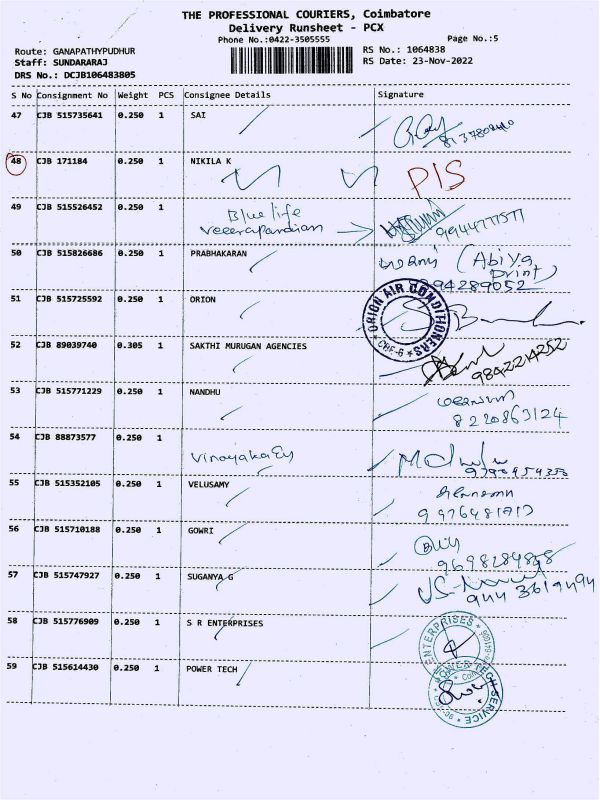 THE PROFESSIONAL COURIERS, Coimbatore
Delivery Runsheet - PCX
Phone No.:0422-3505555 Page No.:5
Route: GANAPATHYPUDHUR RS No.: 1064838
Staff: SUNDARARAJ RS Date: 23-Nov-2022
DRS No.: DCJB106483805
S No Consignment No Weight PCS Consignee Details Signature
47 CJB 515735641 0.250 1 SAI
48 CJB 171184 0.250 1 NIKILA K PIS
49 CJB 515526452 0.250 1 Blue life
Veerapandian 9944777577
50 CJB 515826686 0.250 1 PRABHAKARAN (Abiya
Print)
94289052
51 CJB 515725592 0.250 1 ORION
ORION AIR CONDITIONERS
CBE-6
52 CJB 89039740 0.305 1 SAKTHI MURUGAN AGENCIES
9842214252
53 CJB 515771229 0.250 1 NANDHU
8220863124
54 CJB 88873577 0.250 1
55 CJB 515352105 0.250 1 VELUSAMY
56 CJB 515710188 0.250 1 GOWRI
57 CJB 515747927 0.250 1 SUGANYA G
58 CJB 515776909 0.250 1 S R ENTERPRISES
ENTERPRISES
59 CJB 515614430 0.250 1 POWER TECH
POWER TECH SERVICE